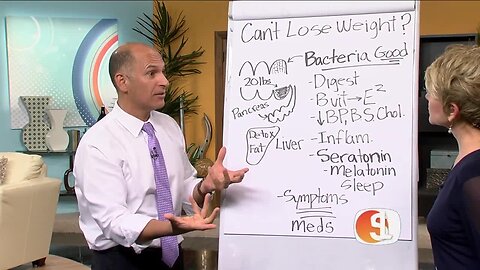 Can't Lose Weight?
Bacteria Good
20lbs
Pancreas
Detox
Fat
Liver
- Digest
- Buit→E²
- ↓BP,BS Chol.
- Inflam.
- Seratonin
- Melatonin
Sleep
- Symptoms
Meds
SL